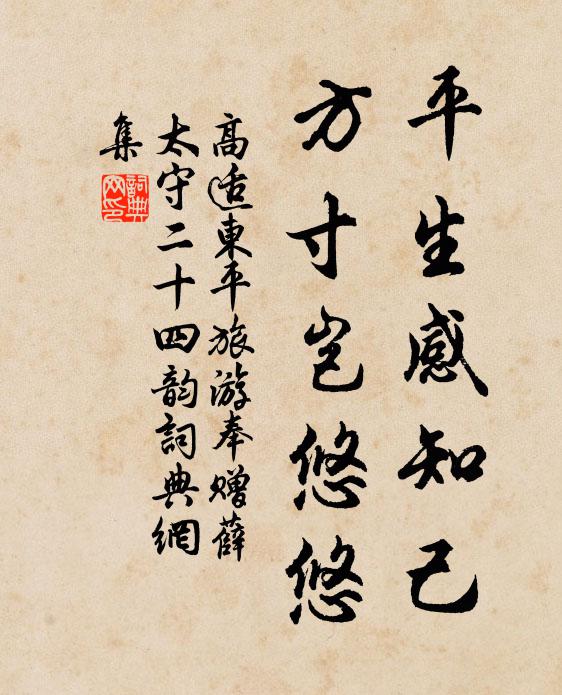 平生感知己
方寸岂悠悠
高适東平旅游奉赠薛
太守二十四韵詞典網
集
詞典
网印